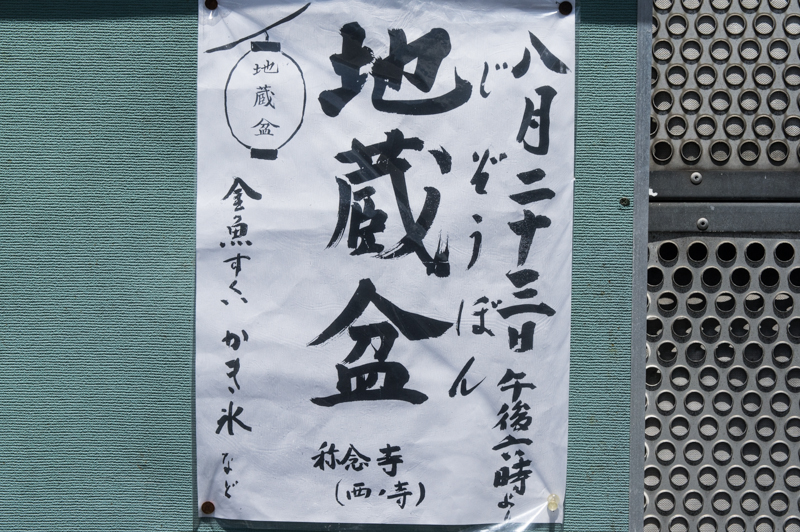 八月二十三日 午後六時より
じぞうぼん
地蔵盆
称念寺
(西ノ寺)
地蔵盆
金魚すくい かき氷 など